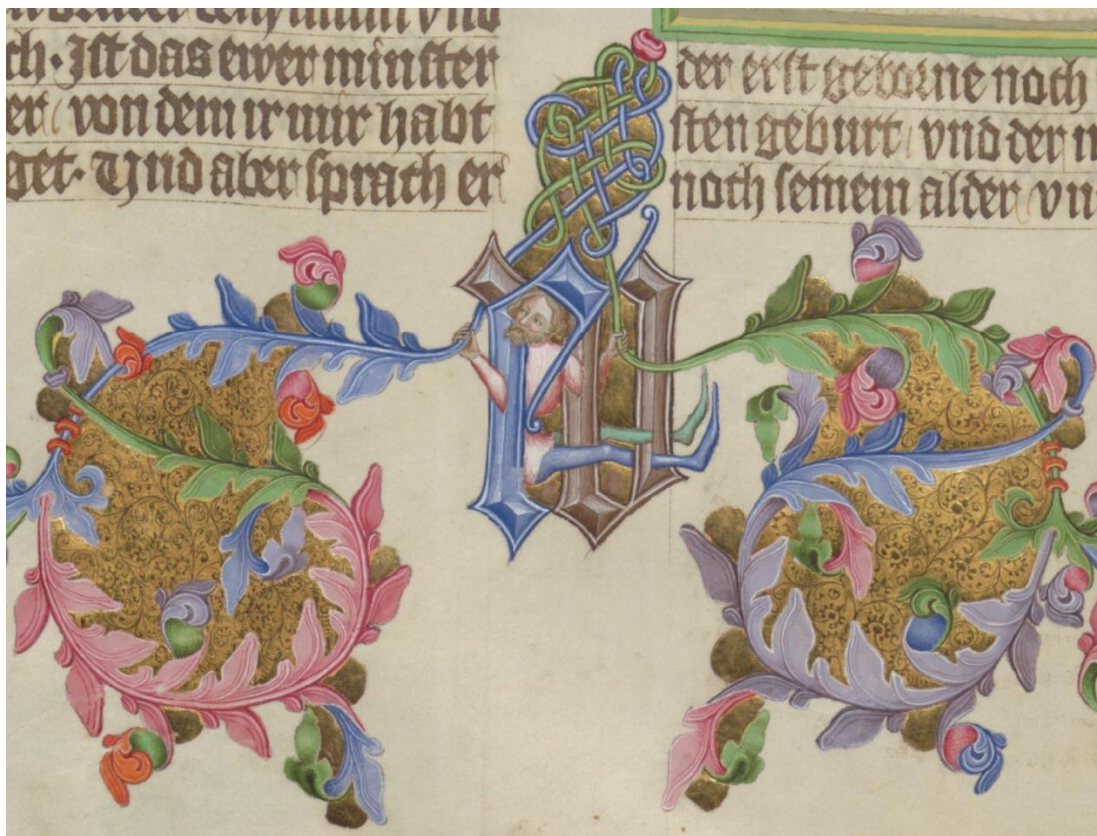 ch · Ist das ewer minster
er von dem ir mir habt
get · Und aber sprach er
der erst geborne noch
sten geburt vnd der
noch seinem alder vn